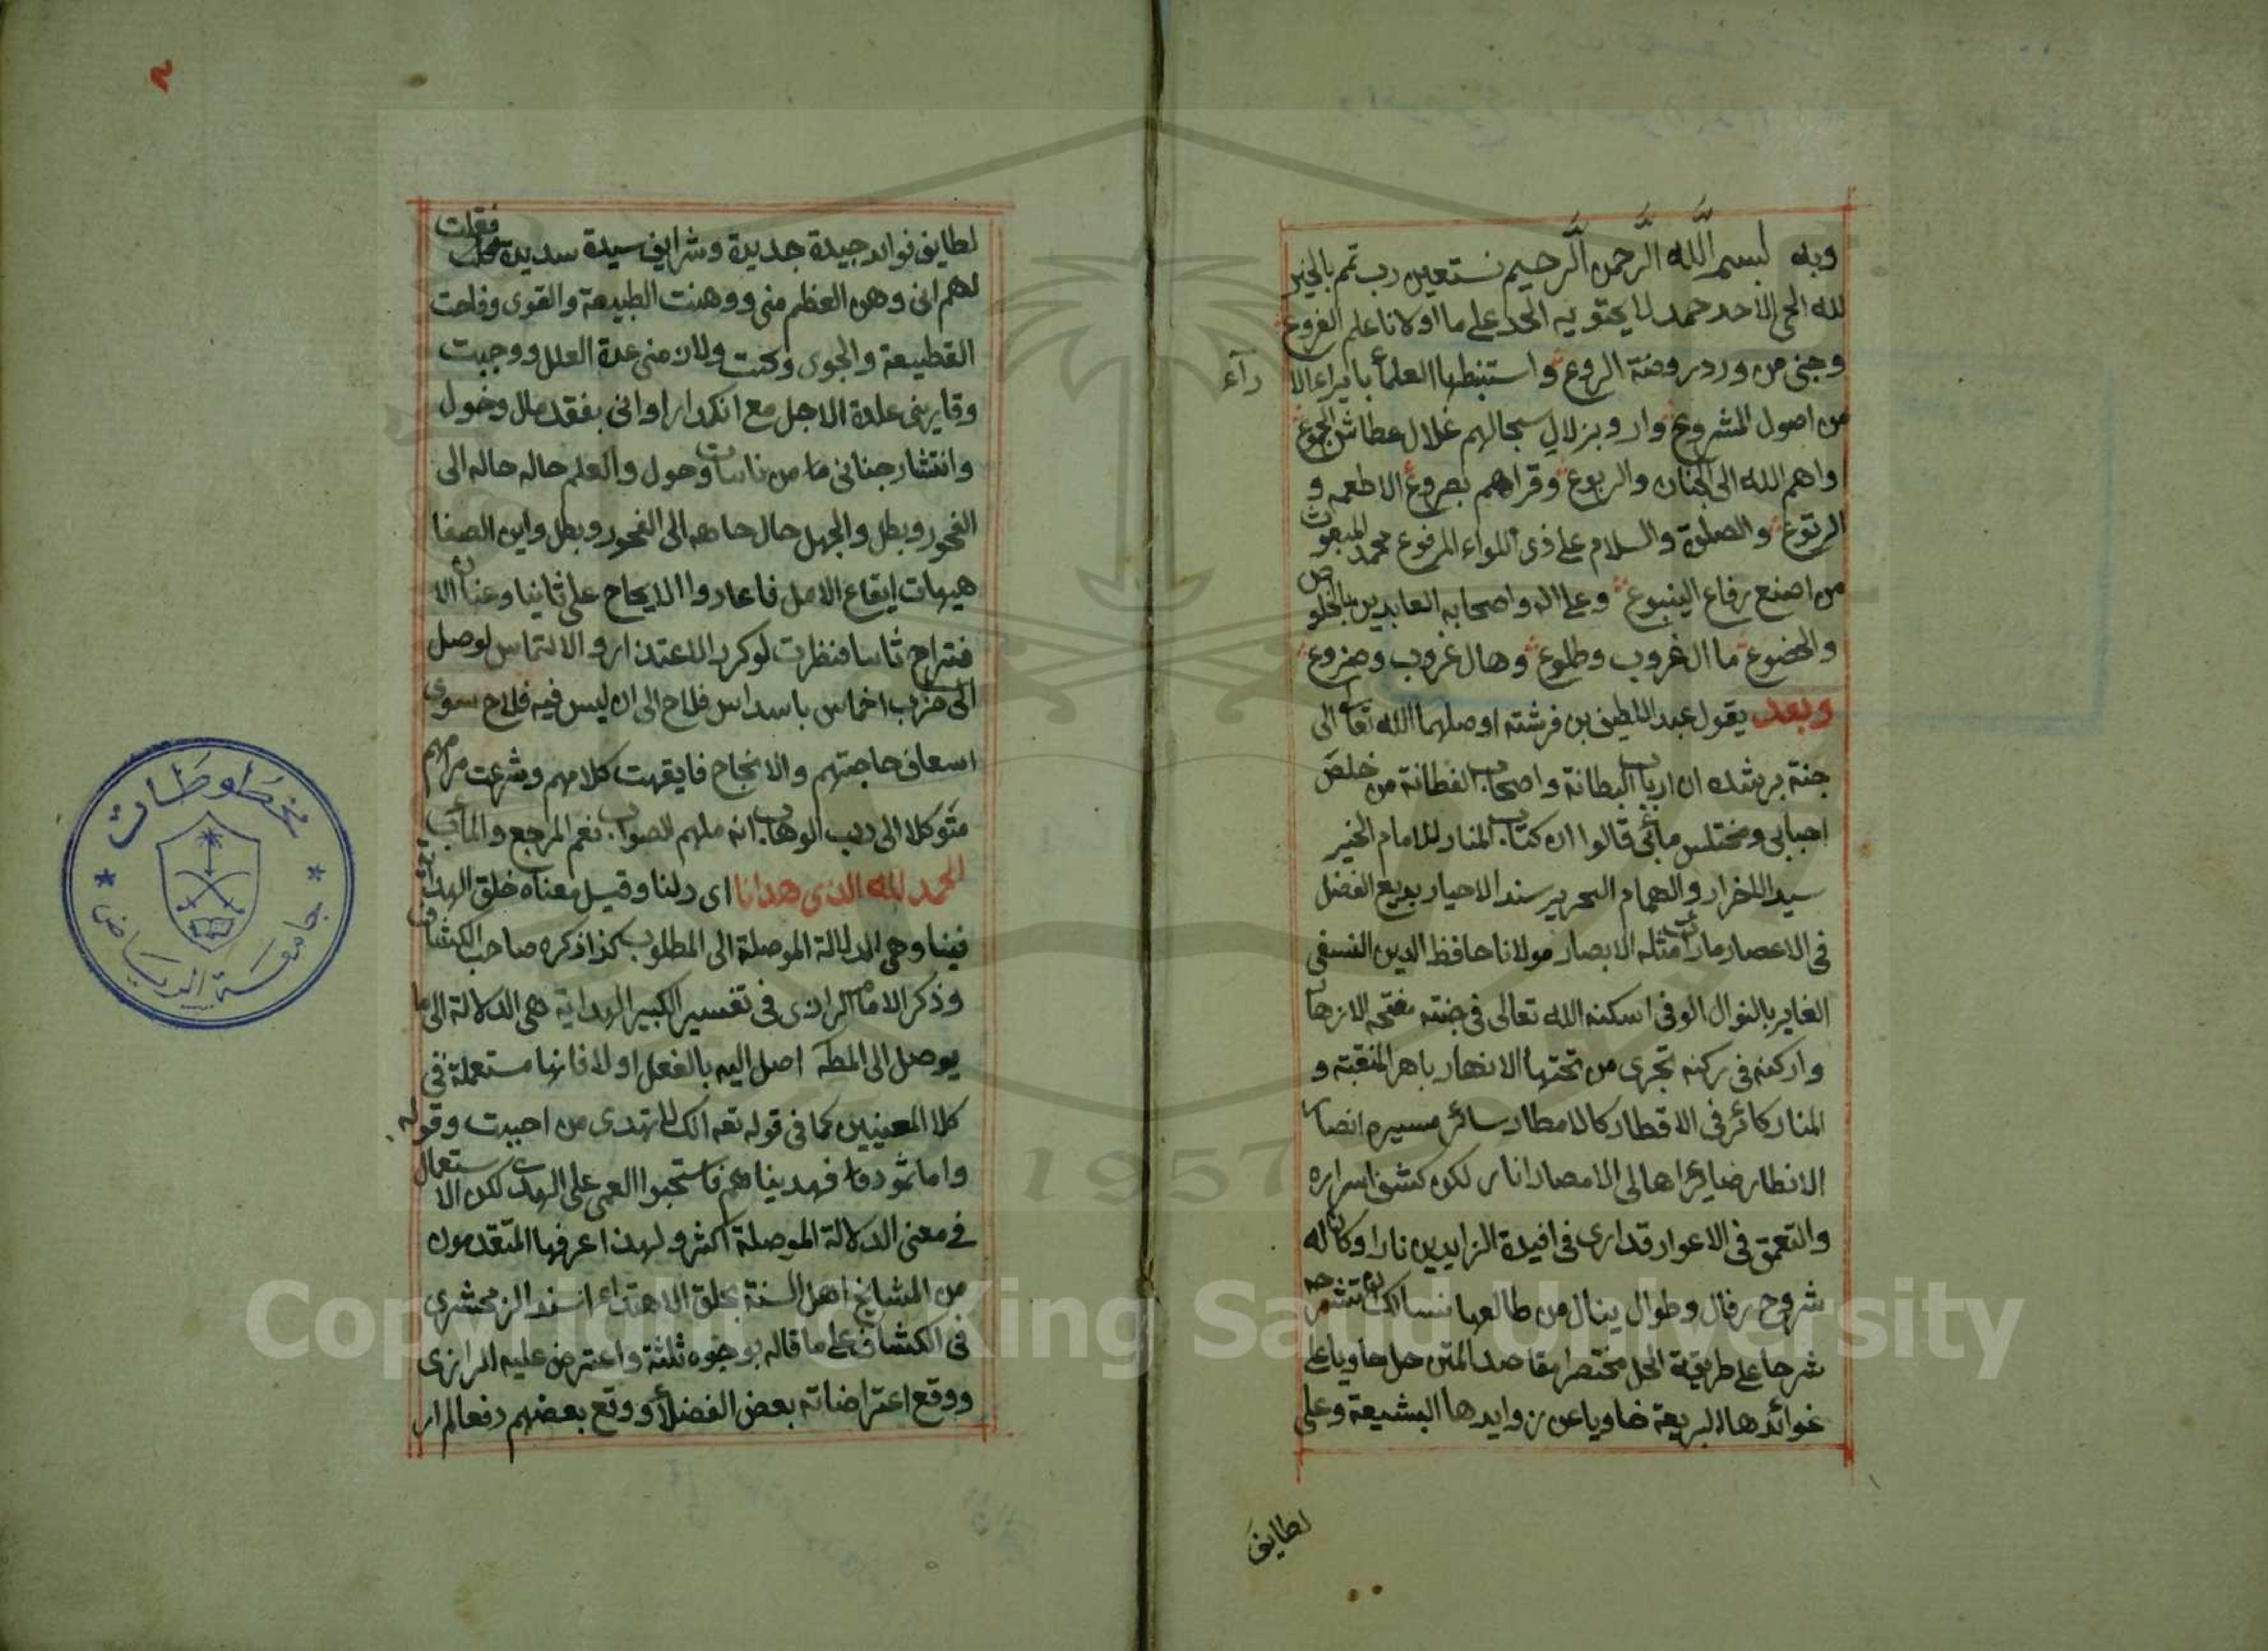 وبه بسم الله الرحمن الرحيم نستعين رب تمم بالخير
لله الحي الاحد حمد لا يحتويه الحد على ما اولانا علم الفروع
وجنى من ورد روضة الروع واستنبطها العلماء بافراء الا
رآء
من اصول المشروع وارو بزلال سجالهم غلال عطاش الجموع
واهم الله الى الجنان والربوع وقراهم بصروع الاطعمه و
الرتوع والصلوة والسلام على ذى اللواء المرفوع محمد المبعوث
من اصنع رفاع الينبوع وعلى اله واصحابه العابدين بالخلوص
والهضوع ما ال غروب وطلوع وهال غروب وضروع
وبعد يقول عبد اللطيف بن فرشته اوصلهما الله تعالى الى
جنة برشده ان ارباب البطانة واصحاب الفطانة من خلص
احبابى ومختلس مأبى قالوا ان كتاب المنار للامام الخير
سيد الاخرار والهمام النحرير سند الاحيار بديع الفضل
فى الاعصار مارأت مثله الابصار مولانا حافظ الدين النسفى
الغاير بالنوال الوفى اسكنه الله تعالى فى جنته مفتحه الازهار
واركنه فى ركنه تجرى من تحتها الانهار باهر المنقبة و
المنار كائر فى الاقطار كالامطار سائر مسيره انصار
الانطار ضاير اهالى الامصار انار لكون كشف اسراره
والتعمق فى الاعوار قد ارى فى افيدة الزايدين نارا وكان له
شروح رفال وطوال ينال من طالعها نسالك ان تشرحه
شرحا على طريقة الحل مختصرا مقاصد المتن حل حاويا على
غوائدها البريعة خاويا عن زوايدها البشيعة وعلى
لطايف
لطايف فوائد جيدة جديدة وشرايف سيدة سديدة فقلت
لهم انى وهن العظم منى ووهنت الطبيعة والقوى وفاحت
القطيعة والجوى وكنت ولان منى عدة العلل ووجبت
وقايرنى علدة الاجل مع انكدار اوانى بفقد مال وخول
وانتشار جنانى ما من ناسات وحول والعلم حاله حاله الى
الفحور وبطل والجهل حال حاهه الى الفحور وبطل واين الصفا
هيهات ايقاع الامل فاعادوا الايحاح على ثانيا وعنان الا
قتراح ثاسا فنظرت لوكرد الاعتذار والالتماس لوصل
الى ضرب اخماس باسداس فلاح الى ان ليس فيه فلاح سوى
اسعاف حاجتهم والانجاح فايقهت كلامهم وشرعت مرامهم
متوكلا الى رب الوهاب انه ملهم الصواب نعم المرجع والمأب
الحمد لله الذى هدانا اى دلنا وقيل معناه خلق الهداية
فينا وهى الدلالة الموصلة الى المطلوب كذا ذكره صاحب الكشاف
وذكر الامام الرازى فى تفسير الكبير الهداية هى الدلالة الى ما
يوصل الى المطه اصل اليه بالفعل اولا فانها مستعملة فى
كلا المعنيين كما فى قوله تعه انك لا تهدى من احببت وقوله
واما ثمود فهديناهم فاستحبوا العمى على الهدى لكن الاستعمال
فى معنى الدلالة الموصلة اكثر ولهذا عرفها المتقدمون
من المشايخ اهل السنة بخلق الاهتداء اسند الزمخشرى
فى الكشاف على ما قاله بوجوه ثلثة واعترض عليه الرازى
ووقع اعتراضاته بعض الفضلاء ووقع بعضهم دفعا لمار
مخطوطات
جامعة الرياض
1957
Copyright © King Saud University